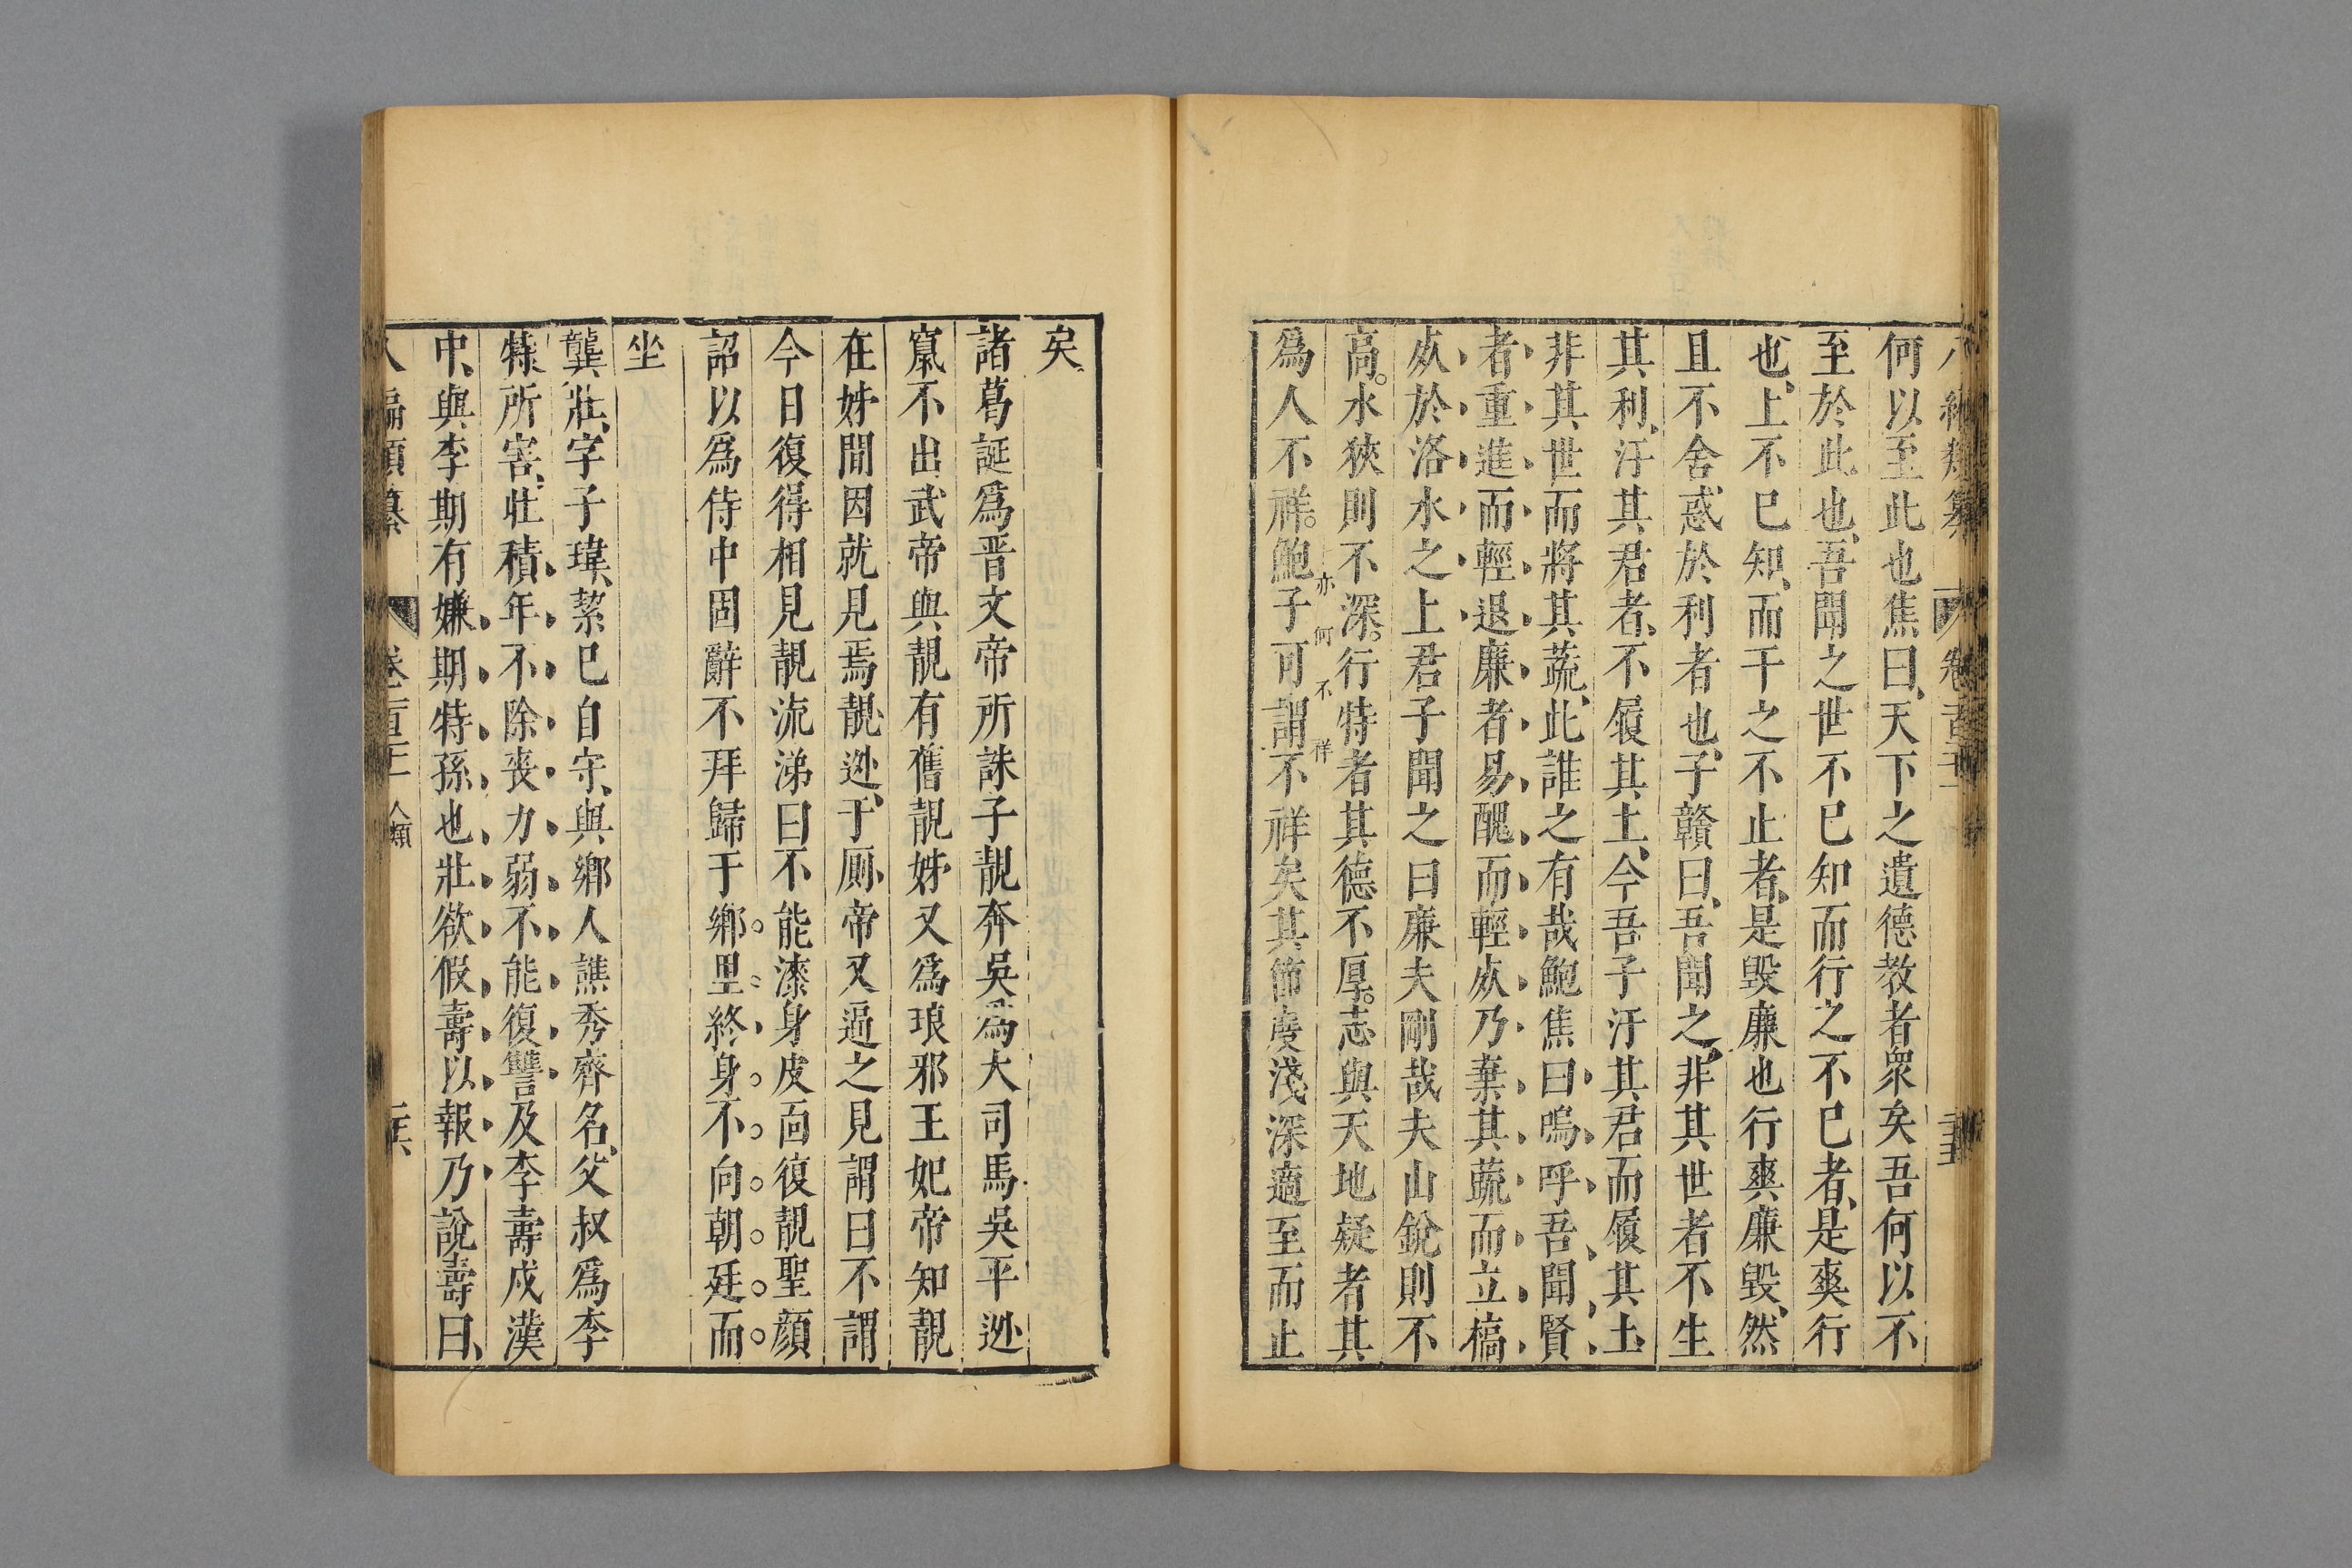 何以至此也焦曰天下之遺德教者衆矣吾何以不
至於此也吾聞之世不巳知而行之不巳者是爽行
也上不巳知而干之不止者是毀廉也行爽廉毀然
且不舍惑於利者也子贛曰吾聞之非其世者不生
其利汙其君者不履其土今吾子汙其君而履其土
非其世而將其蔬此誰之有哉鮑焦曰嗚呼吾聞賢
者重進而輕退廉者易醜而輕死乃棄其蔬而立槁
死於洛水之上君子聞之曰廉夫剛哉夫山銳則不
高水狹則不深行特者其德不厚志與天地疑者其
亦何不祥
為人不祥鮑子可謂不祥矣其節度淺深適至而止
矣
諸葛誕為晋文帝所誅子靚奔吳為大司馬吳平逊
竄不出武帝與靚有舊靚姊又為琅邪王妃帝知靚
在姊間因就見焉靚逊于厠帝又逼之見謂曰不謂
今日復得相見靚流涕曰不能漆身皮面復靚聖顔
詔以為侍中固辭不拜歸于鄉里終身不向朝廷而
坐
龔壯字子瑋絜巳自守與鄉人譙秀齊名父叔為李
特所害壯積年不除喪力弱不能復讐及李壽戍漢
中與李期有嫌期特孫也壯欲假壽以報乃說壽曰